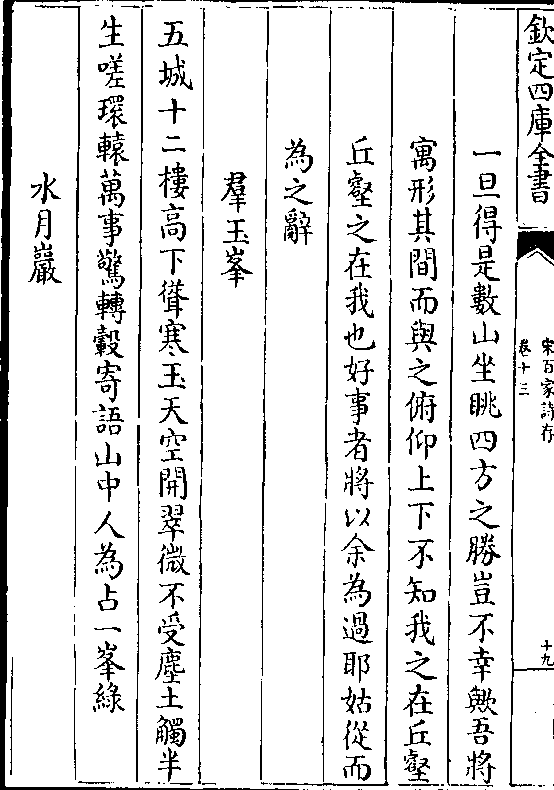 欽定四庫全書
宋百家詩存
卷十三
十九
一旦得是數山坐眺四方之勝豈不幸歟吾將
寓形其間而與之俯仰上下不知我之在丘壑
丘壑之在我也好事者將以余為過耶姑從而
為之辭
羣玉峯
五城十二樓高下聳寒玉天空開翠微不受塵土觸半
生嗟環轅萬事驚轉轂寄語山中人為占一峯綠
水月巖